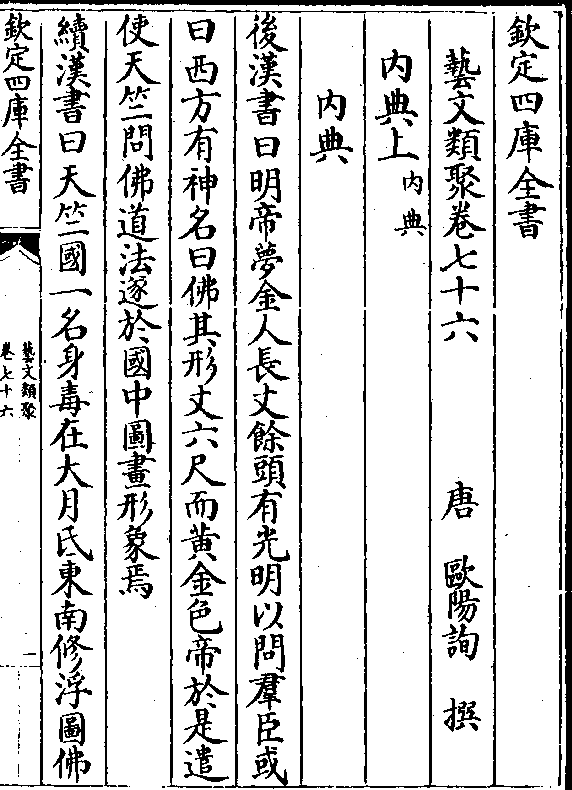 欽定四庫全書
藝文類聚卷七十六
唐 歐陽詢 撰
內典上內典
內典
後漢書曰明帝夢金人長丈餘頭有光明以問羣臣或
曰西方有神名曰佛其形丈六尺而黃金色帝於是遣
使天竺問佛道法遂於國中圖畫形象焉
續漢書曰天竺國一名身毒在大月氏東南修浮圖佛
欽定四庫全書
藝文類聚
卷七十六
一